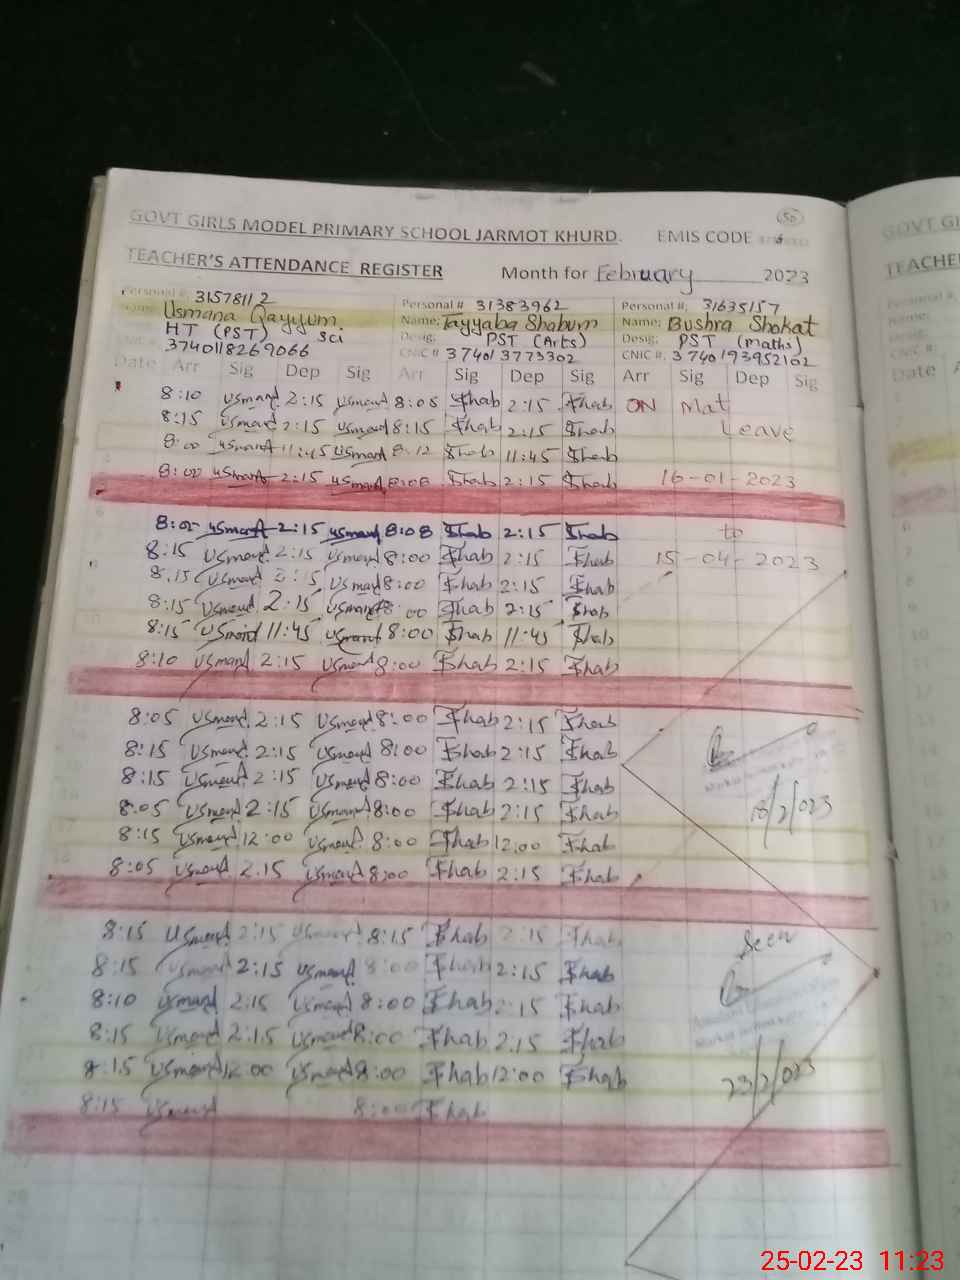 50
GOVT GIRLS MODEL PRIMARY SCHOOL JARMOT KHURD. EMIS CODE
TEACHER'S ATTENDANCE REGISTER Month for February 2023
Personal #: 31578112 Personal # 31383962 Personal #: 31635157
Name: Usmana Qayyum Name: Tayyaba Shabum Name: Bushra Shokat
HT (PST) Sci Desig: PST (Arts) Desig: PST (maths)
3740118269066 CNIC # 374013773302 CNIC #: 3740193952102
Date Arr Sig Dep Sig Arr Sig Dep Sig Arr Sig Dep Sig
8:10 Usmana 2:15 Usmana 8:05 Shab 2:15 Shab ON Mat
8:15 Usmana 2:15 Usmana 8:15 Shab 2:15 Shab Leave
8:00 Usmana 11:45 Usmana 8:12 Shab 11:45 Shab
8:00 Usmana 2:15 Usmana 8:08 Shab 2:15 Shab 16-01-2023
8:05 Usmana 2:15 Usmana 8:08 Shab 2:15 Shab to
8:15 Usmana 2:15 Usmana 8:00 Shab 2:15 Shab 15-04-2023
8:15 Usmana 2:15 Usmana 8:00 Shab 2:15 Shab
8:15 Usmana 2:15 Usmana 8:00 Shab 2:15 Shab
8:15 Usmana 11:45 Usmana 8:00 Shab 11:45 Shab
8:10 Usmana 2:15 Usmana 8:00 Shab 2:15 Shab
8:05 Usmana 2:15 Usmana 8:00 Shab 2:15 Shab
8:15 Usmana 2:15 Usmana 8:00 Shab 2:15 Shab
8:15 Usmana 2:15 Usmana 8:00 Shab 2:15 Shab
8:05 Usmana 2:15 Usmana 8:00 Shab 2:15 Shab 18/2/023
8:15 Usmana 12:00 Usmana 8:00 Shab 12:00 Shab
8:05 Usmana 2:15 Usmana 8:00 Shab 2:15 Shab
8:15 Usmana 2:15 Usmana 8:15 Shab 2:15 Shab Seen
8:15 Usmana 2:15 Usmana 8:00 Shab 2:15 Shab
8:10 Usmana 2:15 Usmana 8:00 Shab 2:15 Shab
8:15 Usmana 2:15 Usmana 8:00 Shab 2:15 Shab
8:15 Usmana 12:00 Usmana 8:00 Shab 12:00 Shab 23/2/023
8:15 Usmana 8:00 Shab
25-02-23 11:23